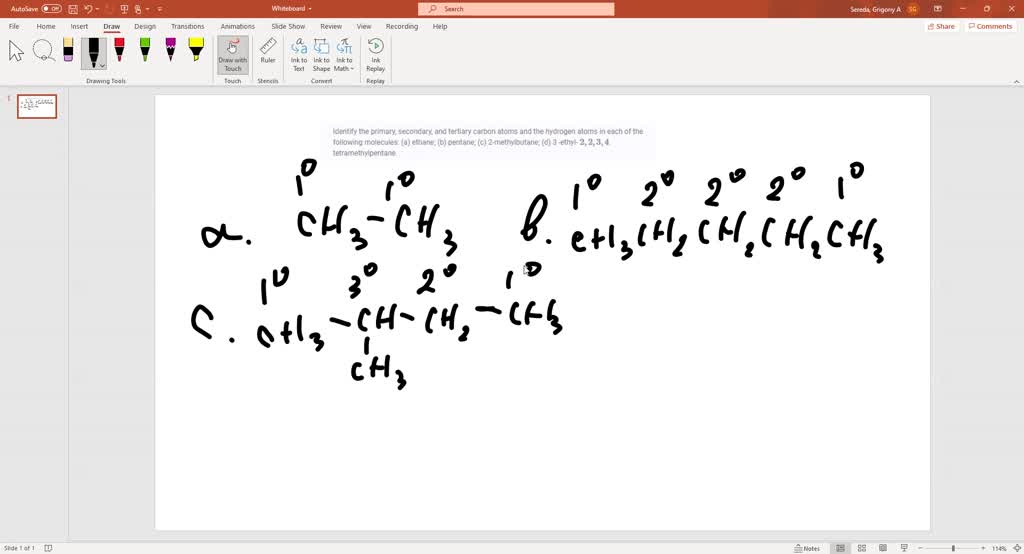 AutoSave Off Whiteboard Search Sereda, Grigoriy A SG
File Home Insert Draw Design Transitions Animations Slide Show Review View Recording Help Share Comments
Draw with Touch Ruler Ink to Text Ink to Shape Ink to Math Ink Replay
Drawing Tools Touch Stencils Convert Replay
1
Identify the primary, secondary, and tertiary carbon atoms and the hydrogen atoms in each of the
following molecules: (a) ethane; (b) pentane; (c) 2-methylbutane; (d) 3 -ethyl- 2, 2, 3, 4
tetramethylpentane.
1° 1°
a. CH3-CH3
1° 2° 2° 2° 1°
b. CH3CH2CH2CH2CH3
1° 3° 2° 1°
c. CH3-CH-CH2-CH3
CH3
Slide 1 of 1 Notes 114%